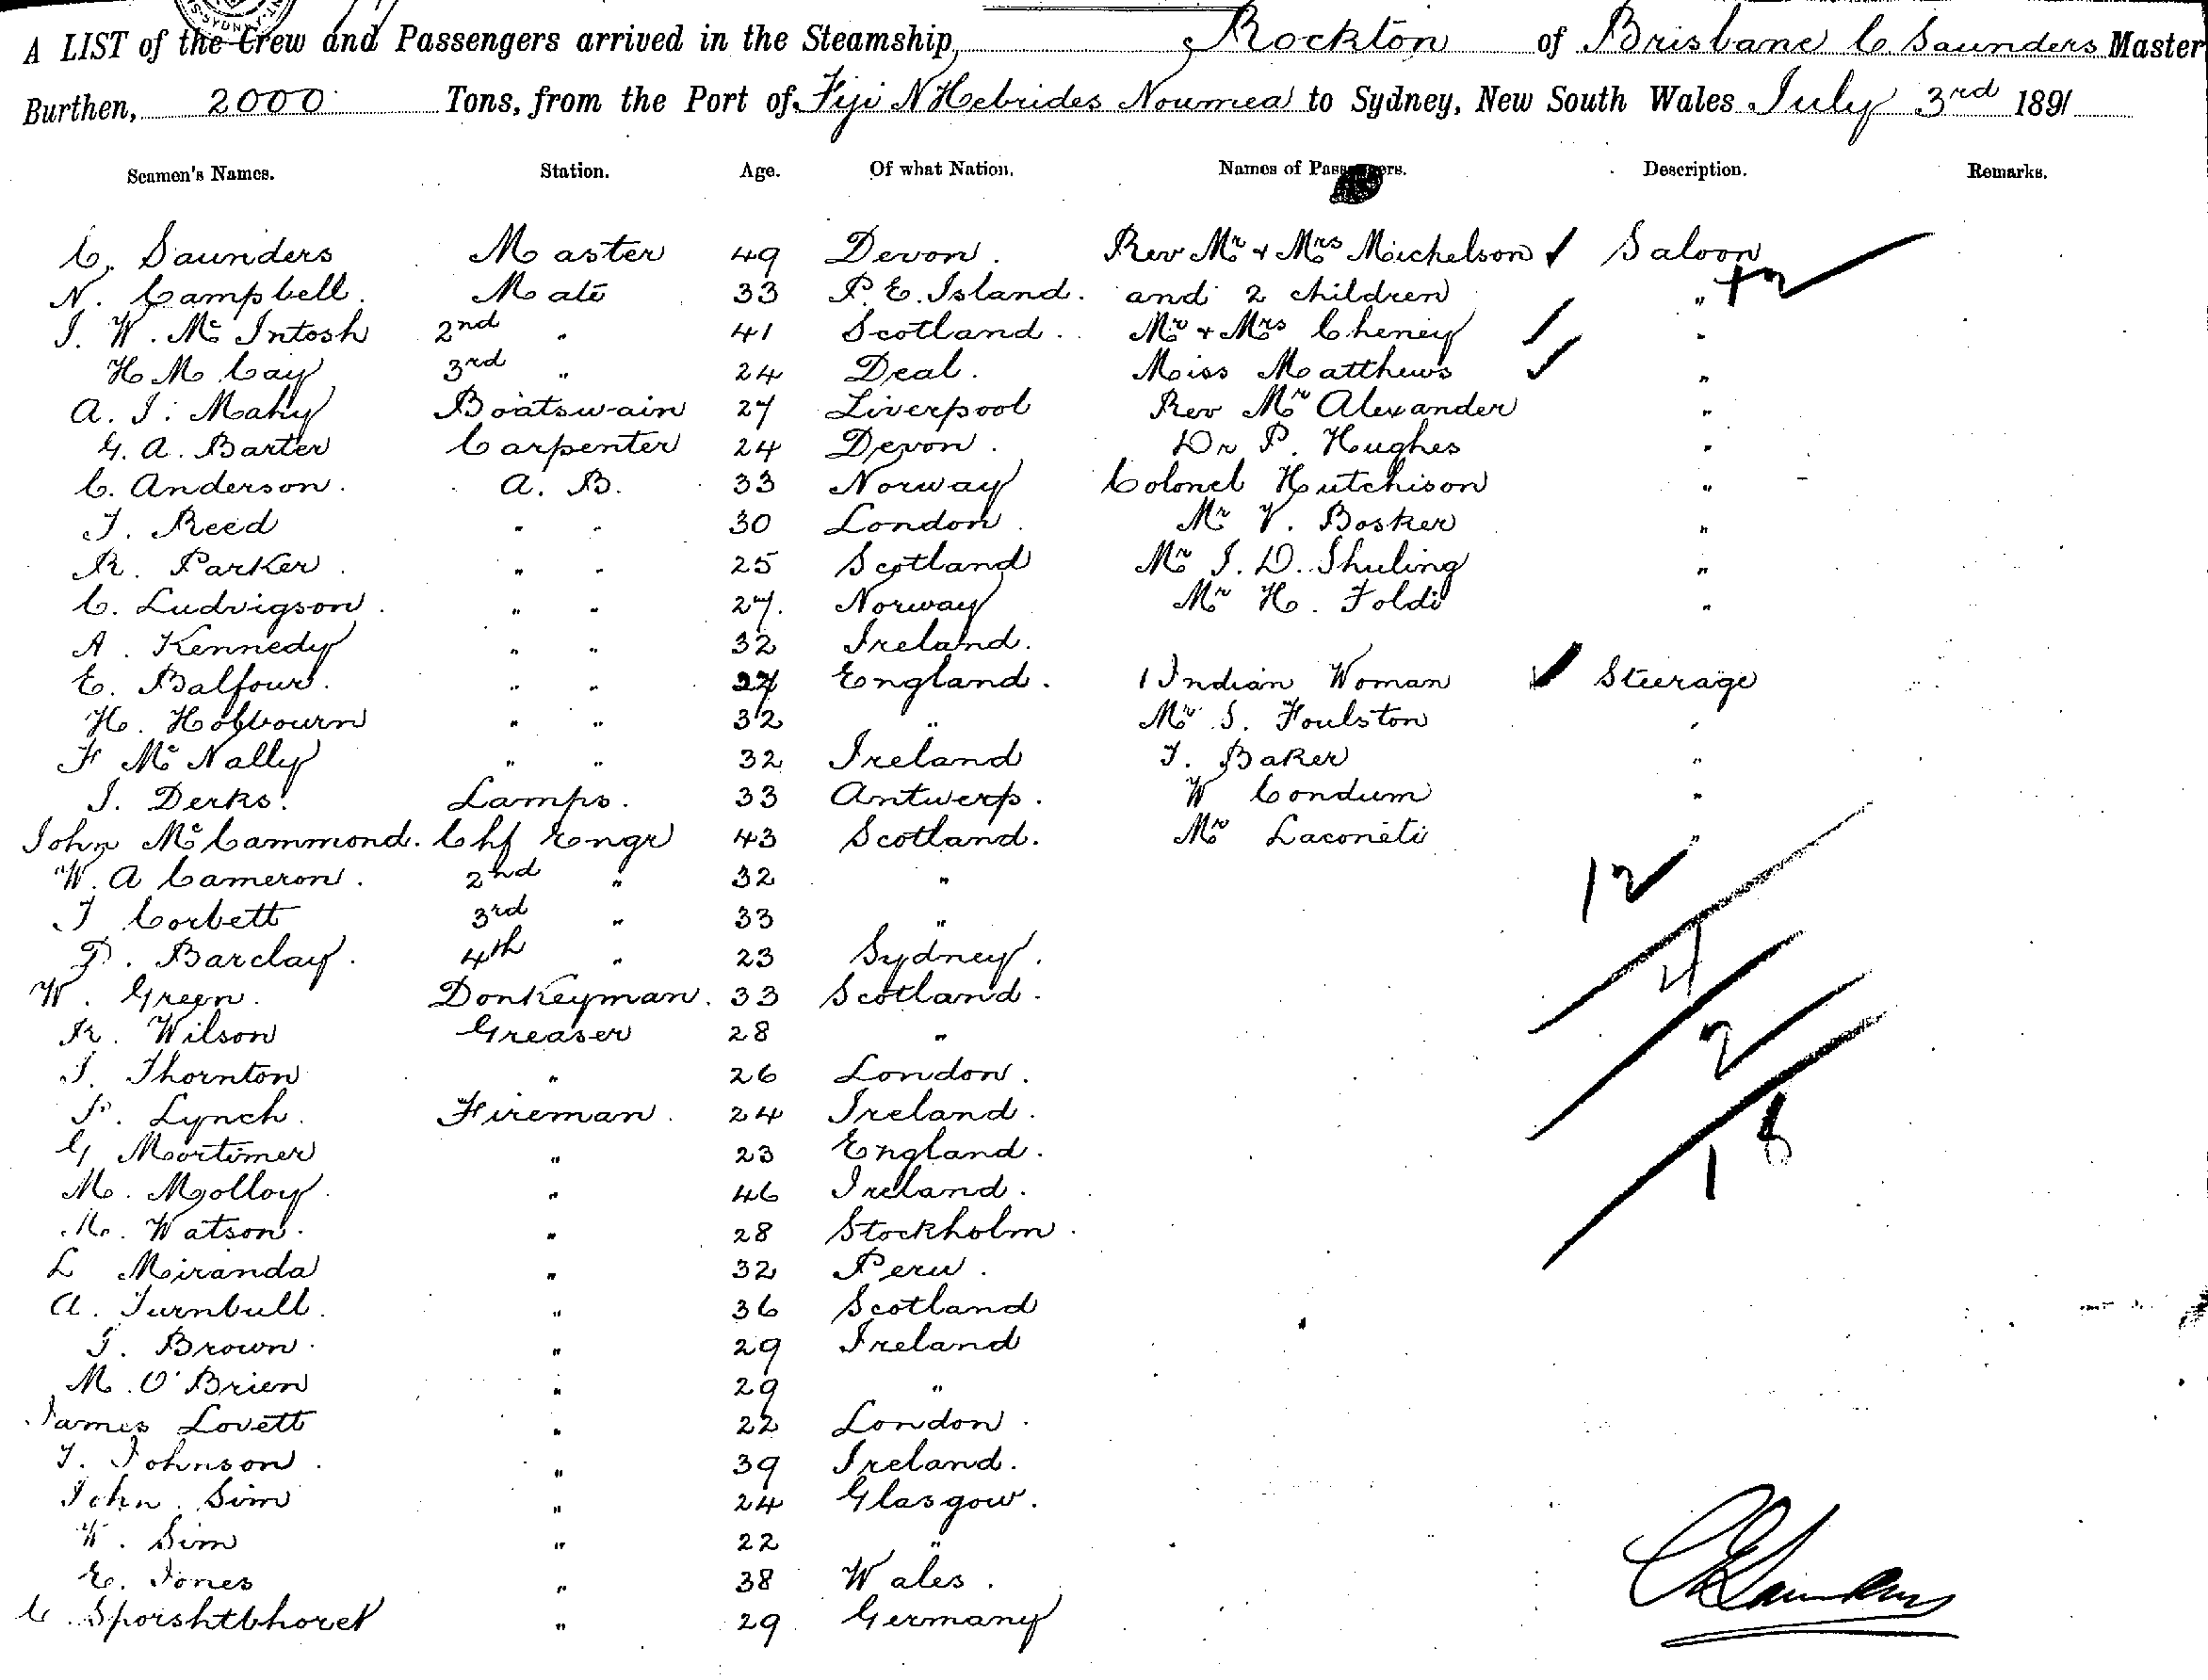 A LIST of the Crew and Passengers arrived in the Steamship, Rockton of Brisbane C Saunders Master
Burthen, 2000 Tons, from the Port of Fiji N Hebrides Noumea to Sydney, New South Wales July 3rd 1891
Seamen's Names. Station. Age. Of what Nation. Names of Passengers. Description. Remarks.
C. Saunders Master 49 Devon. Rev Mr & Mrs Michelson Saloon
N. Campbell. Mate 33 P. E. Island. and 2 children " 12
J. W. Mc Intosh 2nd " 41 Scotland. Mr & Mrs Cheney "
H M Cay 3rd " 24 Deal. Miss Matthews "
A. J. Mahy Boatswain 27 Liverpool Rev Mr Alexander "
G. A. Barter Carpenter 24 Devon. Dr P. Hughes "
C. Anderson. A. B. 33 Norway Colonel Hutchison "
J. Reed " " 30 London. Mr V. Bosker "
R. Parker. " " 25 Scotland Mr J. D. Shuling "
C. Ludvigson. " " 27. Norway Mr H. Foldi "
A. Kennedy " " 32 Ireland.
E. Balfour. " " 27 England. 1 Indian Woman Steerage
H. Holbourn " " 32 " Mr S. Foulston "
F Mc Nally " " 32 Ireland T. Baker "
J. Derks. Lamps. 33 Antwerp. W Condum "
John McCammond. Chf Engr 43 Scotland. Mr Laconeti "
W. A Cameron. 2nd " 32 " 12
J Corbett 3rd " 33 "
P. Barclay. 4th " 23 Sydney. 4
W. Green. Donkeyman. 33 Scotland.
R. Wilson Greaser 28 " 2
J. Thornton " 26 London.
P. Lynch. Fireman. 24 Ireland.
G Mortimer " 23 England. 18
M. Molloy. " 46 Ireland.
M. Watson. " 28 Stockholm.
L Miranda " 32 Peru.
A. Turnbull. " 36 Scotland
J. Brown. " 29 Ireland
M. O'Brien " 29 "
James Lovett " 22 London.
T. Johnson. " 39 Ireland.
John. Sim " 24 Glasgow.
W. Sim " 22 "
E. Jones " 38 Wales.
C. " 29 Germany
C Saunders